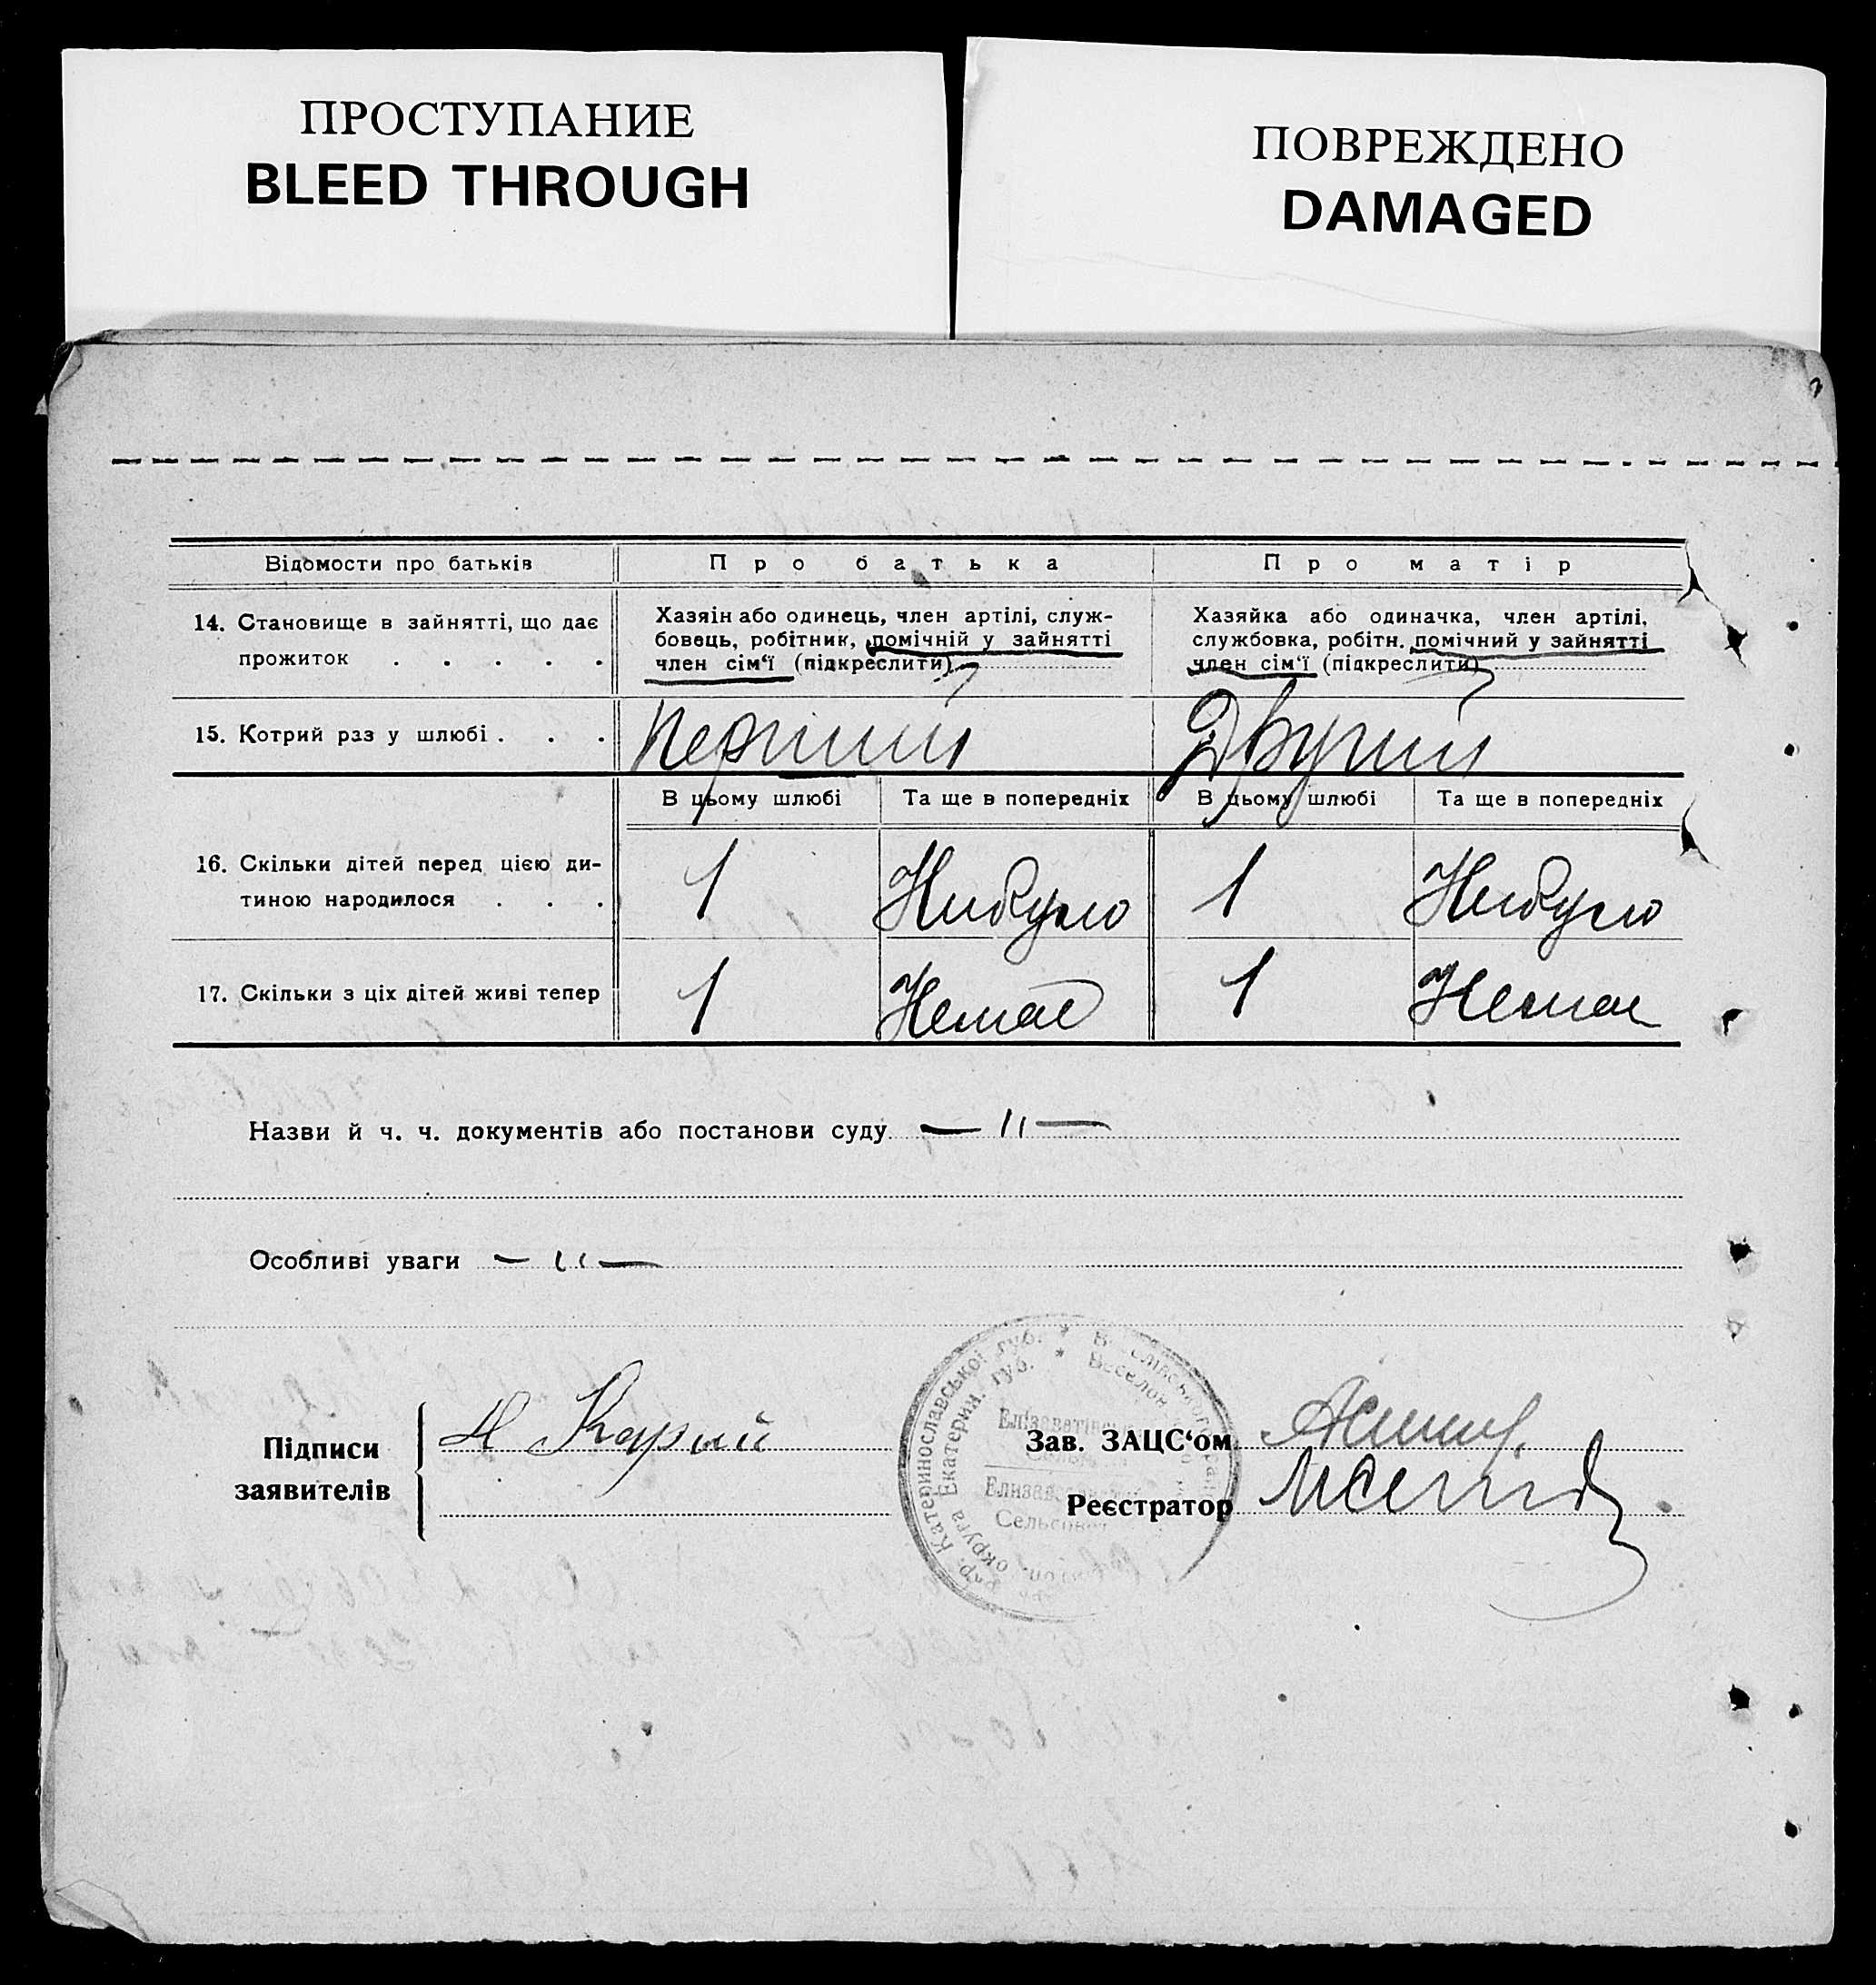 ПРОСТУПАНИЕ
BLEED THROUGH
ПОВРЕЖДЕНО
DAMAGED
Відомости про батьків
Про батька
Про матір
14. Становище в зайнятті, що дає
прожиток . . . . .
Хазяін або одинець, член артілі, служ-
бовець, робітник, помічній у зайнятті
член сім‘ї (підкреслити)
Хазяйка або одиначка, член артілі,
службовка, робітн. помічний у зайнятті
член сім‘ї (підкреслити)
15. Котрий раз у шлюбі . . .
Перший
Другий
В цьому шлюбі
Та ще в попередніх
В цьому шлюбі
Та ще в попередніх
16. Скільки дітей перед цією ди-
тиною народилося . . .
1
Небуло
1
Небуло
17. Скільки з ціх дітей живі тепер
1
Немає
1
Немає
Назви й ч. ч. документів або постанови суду — 〃 —
Особливі уваги — 〃 —
Підписи
заявителів
Карий
Катеринославської губ. *
округа Екатерин. губ. *
Зав. ЗАЦС‘ом
Реєстратор